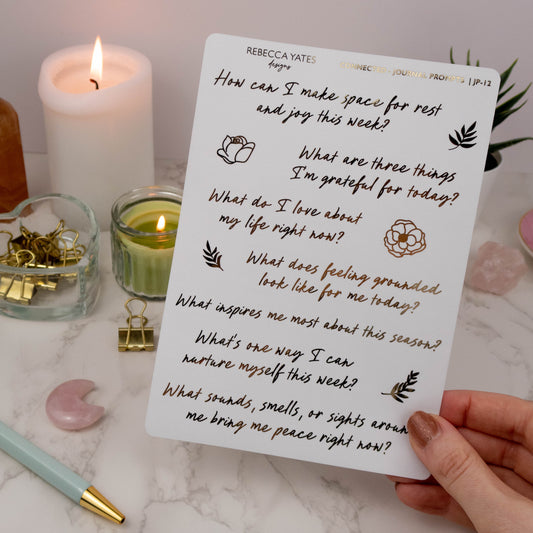 REBECCA YATES
designs
JOURNAL PROMPTS | JP-12
How can I make space for rest
and joy this week?
What are three things
I'm grateful for today?
What do I love about
my life right now?
What does feeling grounded
look like for me today?
What inspires me most about this season?
What's one way I can
nurture myself this week?
What sounds, smells, or sights aroun
me bring me peace right now?